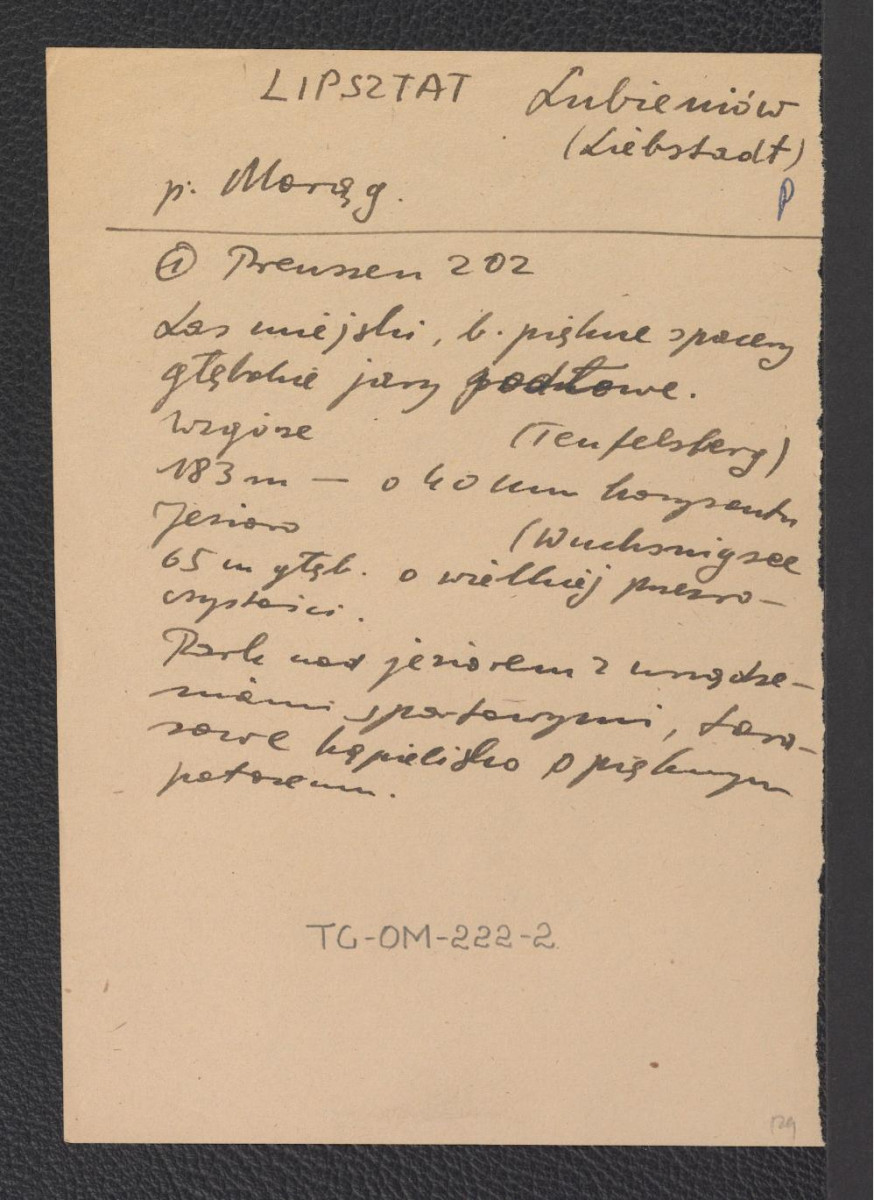 LIPSZTAT Lubieniów
(Liebstadt)
p. Morąg.
P
① Preussen 202
Las miejski, b. piękne spacery
głębokie jary podłowe.
Wzgórze (Teufelsberg)
183 m — o 40 km horyzontu
Jezioro (Wuchsnigsee
65 m głęb. o wielkiej przezro-
czystości.
Park nad jeziorem z urządze-
niami sportowymi, tara-
sowe kąpielisko o pięknym
położeniu.
TG-OM-222-2
129